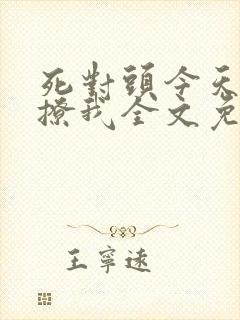 死對頭今天
撩我全文免
王寧遠